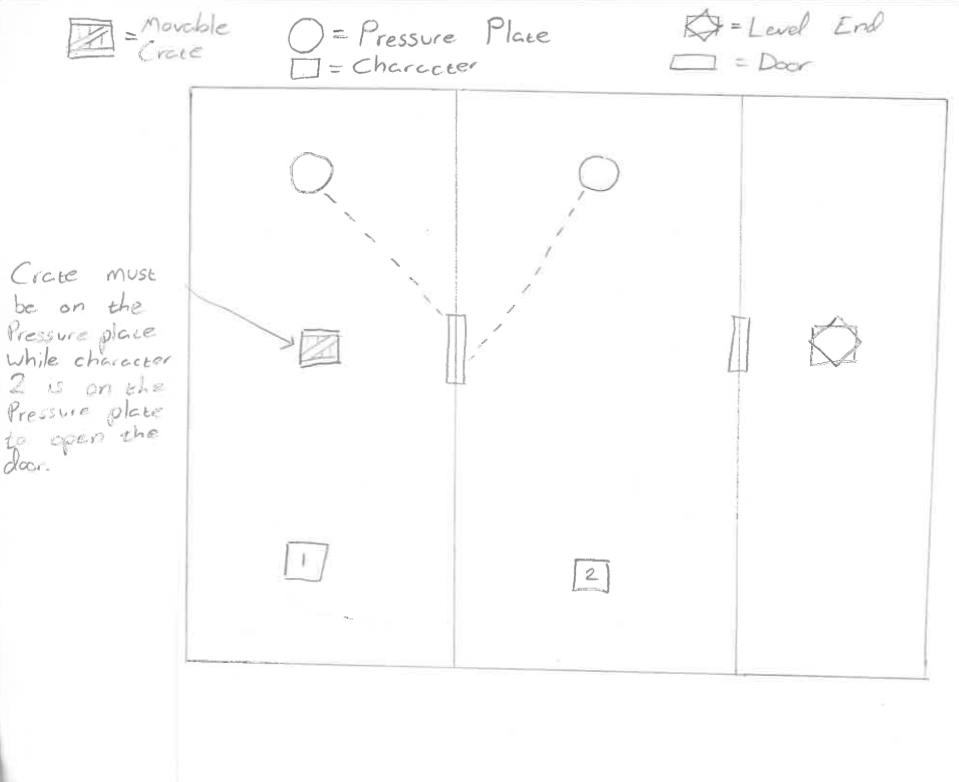 = Movable
Crate
= Pressure Plate
= Character
= Level End
= Door
Crate must
be on the
Pressure plate
While character
2 is on the
Pressure plate
to open the
door.
1
2